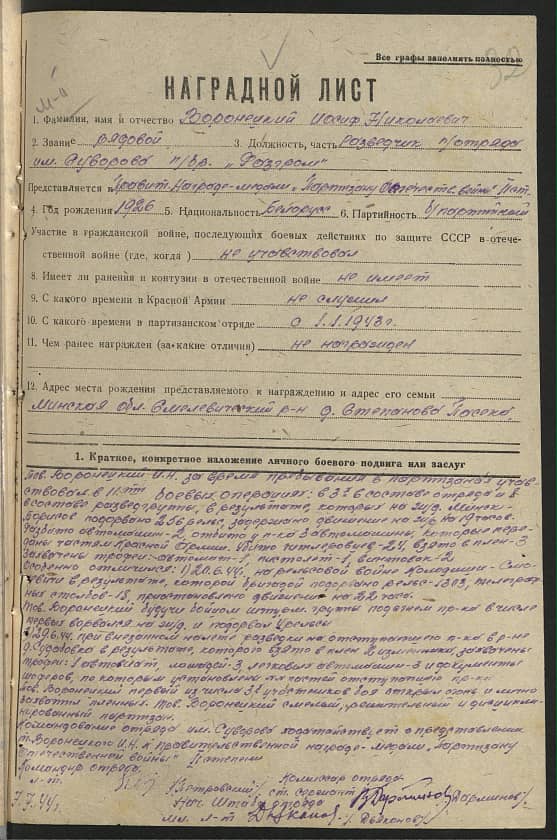 Все графы заполнять полностью
НАГРАДНОЙ ЛИСТ
1. Фамилии, имя и отчество Воронецкий Иосиф Николаевич
2. Звание рядовой 3. Должность, часть Разведчик п/отряда
им. Суворова п/бр. „Разгром"
Представляется к Правит. Награде-медали „Партизану Отечеств. войны" II ст.
4. Год рождения 1926 5. Национальность Белорус 6. Партийность б/партийный
Участие в гражданской войне, последующих боевых действиях по защите СССР в отече-
ственной войне (где, когда) не участвовал
8. Имеет ли ранения и контузии в отечественной войне не имеет
9. С какого времени в Красной Армии не служил
10. С какого времени в партизанском отряде с 1.1.1943г.
11. Чем ранее награжден (за какие отличия) не награжден
12. Адрес места рождения представляемого к награждению и адрес его семьи
Минская обл. Смолевический р-н д. Степаново Пасека
1. Краткое, конкретное изложение личного боевого подвига или заслуг
тов. Воронецкий И.Н. за время пребывания в партизанах участ-
ствовал в 11-ти боевых операциях: в 3х в составе отряда и 8
в составе разведгруппы, в результате, которых на ж/д. Минск-
Борисов подорвано 256 рельс, задержано движение на ж/д на 19 часов.
разбито автомашин-2, отбито у п-ка 3 автомашины, которые пере-
даны частям Красной Армии. Убито гитлеровцев-24, взято в плен-3
Захвачены трофеи: автомат-1, пистолет-1, винтовок-2
Особенно отличился: 1) 20.6.44г. на рельсовой войне
в результате, которой бригадой подорвано рельс-1303, телеграф-
ных столбов-18, приостановлено движение на 22 часа.
Тов. Воронецкий будучи бойцом штурм. группы под огнем пр-ка в числе
первых ворвался на ж/д. и подорвал рельсы
2) 29.6.44г. при внезапном налете разведки на отступающего п-ка в р-не
д. Судобовка в результате, которого взято в плен захвачены
трофеи: 1 автомат, лошадей-3, легковых автомашин-3 и документы
шоферов, по которым установлены части отступающего пр-ка
тов. Воронецкий первый из числа 3х участников боя открыл огонь и лично
захватил пленных. Тов. Воронецкий смелый, решительный и дисципли-
нированный партизан.
Командование отряда им. Суворова ходатайствует о представлении
т. Воронецкого И.Н. к правительственной награде-медали „Партизану
Отечественной войны" II степени
Командир отряда Комиссар отряда
л-т. Петровский ст. сержант /Дарлинов/
Нач. Штаба отряда
7.7.44г. мл. л-т /Дьяконов/